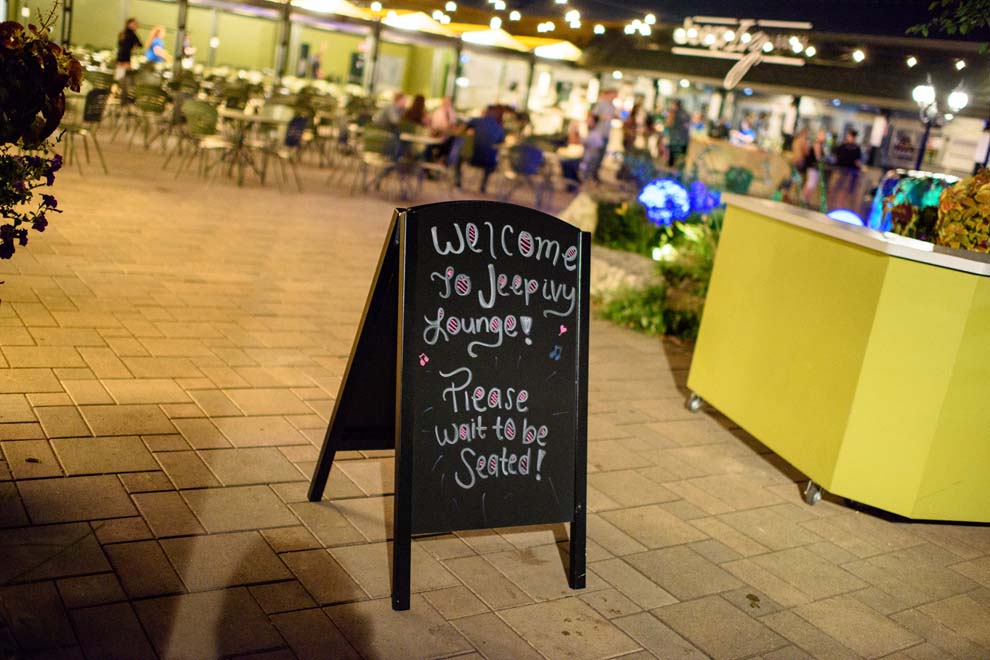 Welcome
To Jeep ivy
Lounge!
Please
wait to be
Seated!